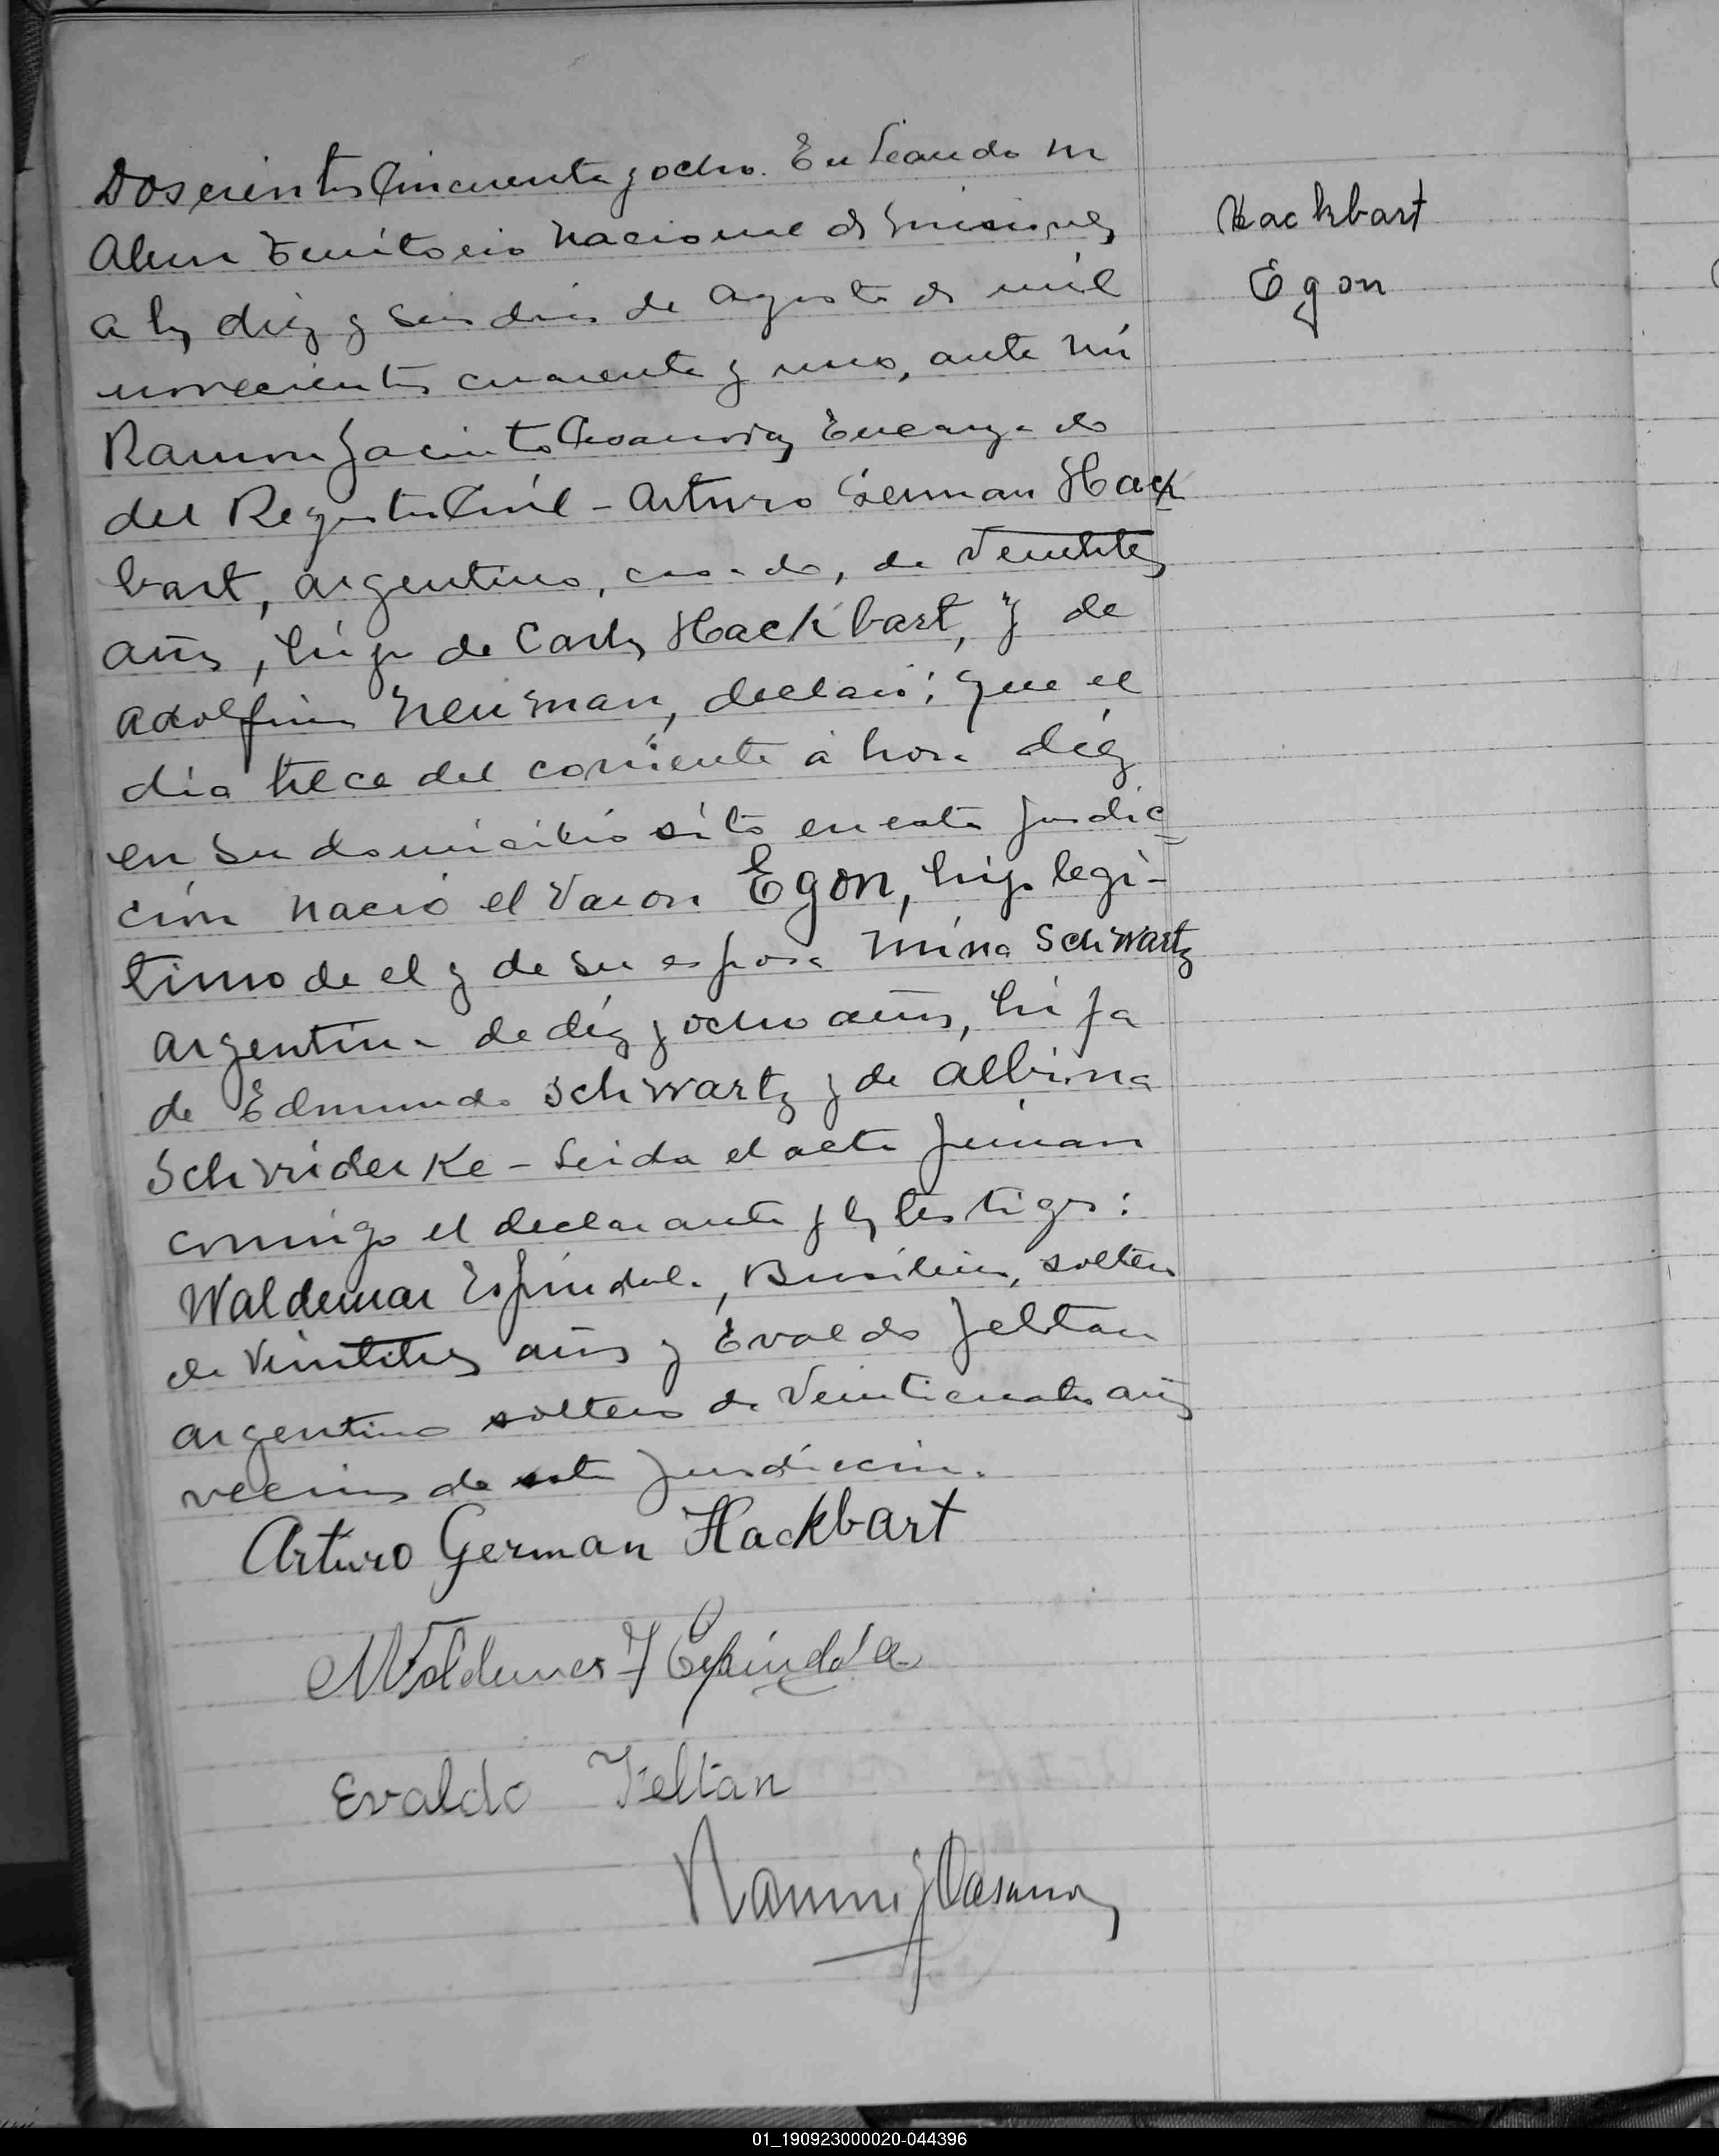 Doscientos Cincuenta y ocho. En Leandro N
Alem Territorio Nacional de Misiones
a los diez y seis dias de Agosto de mil
novecientos cuarenta y uno, ante mi
Ramon Jacinto Casanova, Encargado
del Registro Civil - Arturo German Hack
bart, argentino, casado, de veintitres
años, hijo de Carlos Hackbart, y de
Adolfina Neuman, declaró; que el
dia trece del corriente á hora diéz
en su domicilio sito en esta jurisdic
ción nació el varon Egon, hijo legi-
timo de el y de su esposa Mina Schwartz
argentina de diéz y ocho años, hija
de Edmundo Schwartz y de Albina
Schriderke - Leida el acta firman
conmigo el declarante y los testigos:
Waldemar Espindola, Brasilero, soltero
de veintitres años y Evaldo Feltan
argentino soltero de veinticuatro años
vecinos de esta jurisdiccion.
Arturo German Hackbart
Waldemar Espindola
Evaldo Feltan
Ramon J Casanova
Hackbart
Egon
01_190923000020-044396